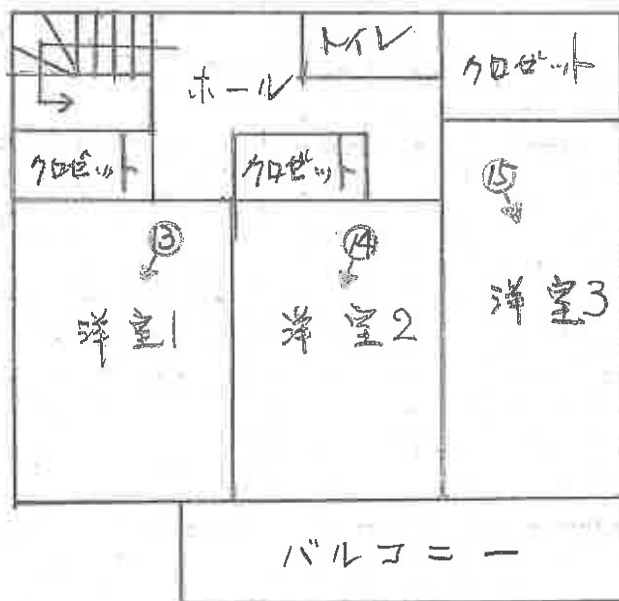 トイレ
クロゼット
ホール
クロゼット
クロゼット
⑬
⑭
⑮
洋室1
洋室2
洋室3
バルコニー